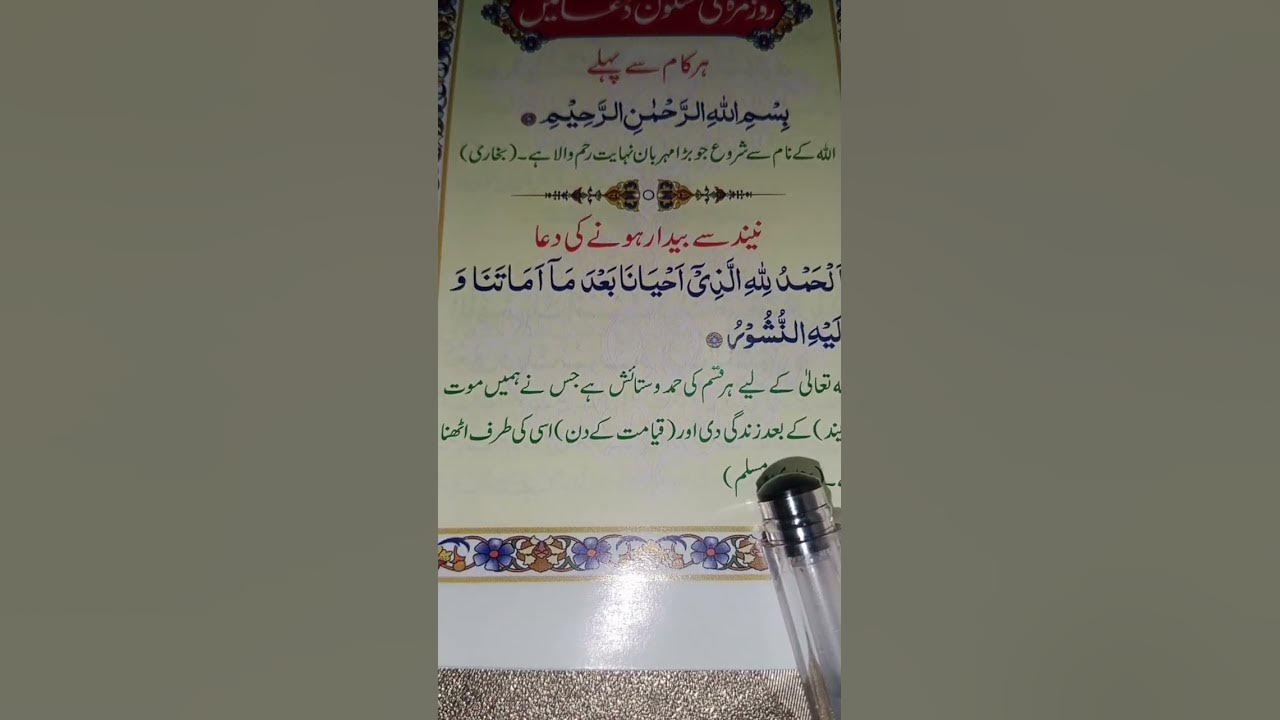 روزمرہ کی مسنون دعائیں
ہر کام سے پہلے
بِسْمِ اللهِ الرَّحْمٰنِ الرَّحِيْمِ
اللہ کے نام سے شروع جو بڑا مہربان نہایت رحم والا ہے۔ (بخاری)
نیند سے بیدار ہونے کی دعا
اَلْحَمْدُ لِلّٰهِ الَّذِيْٓ اَحْيَانَا بَعْدَ مَآ اَمَاتَنَا وَ
لَيْهِ النُّشُوْرُ
تعالیٰ کے لیے ہر قسم کی حمد و ستائش ہے جس نے ہمیں موت
یند) کے بعد زندگی دی اور (قیامت کے دن) اسی کی طرف اٹھنا
مسلم)